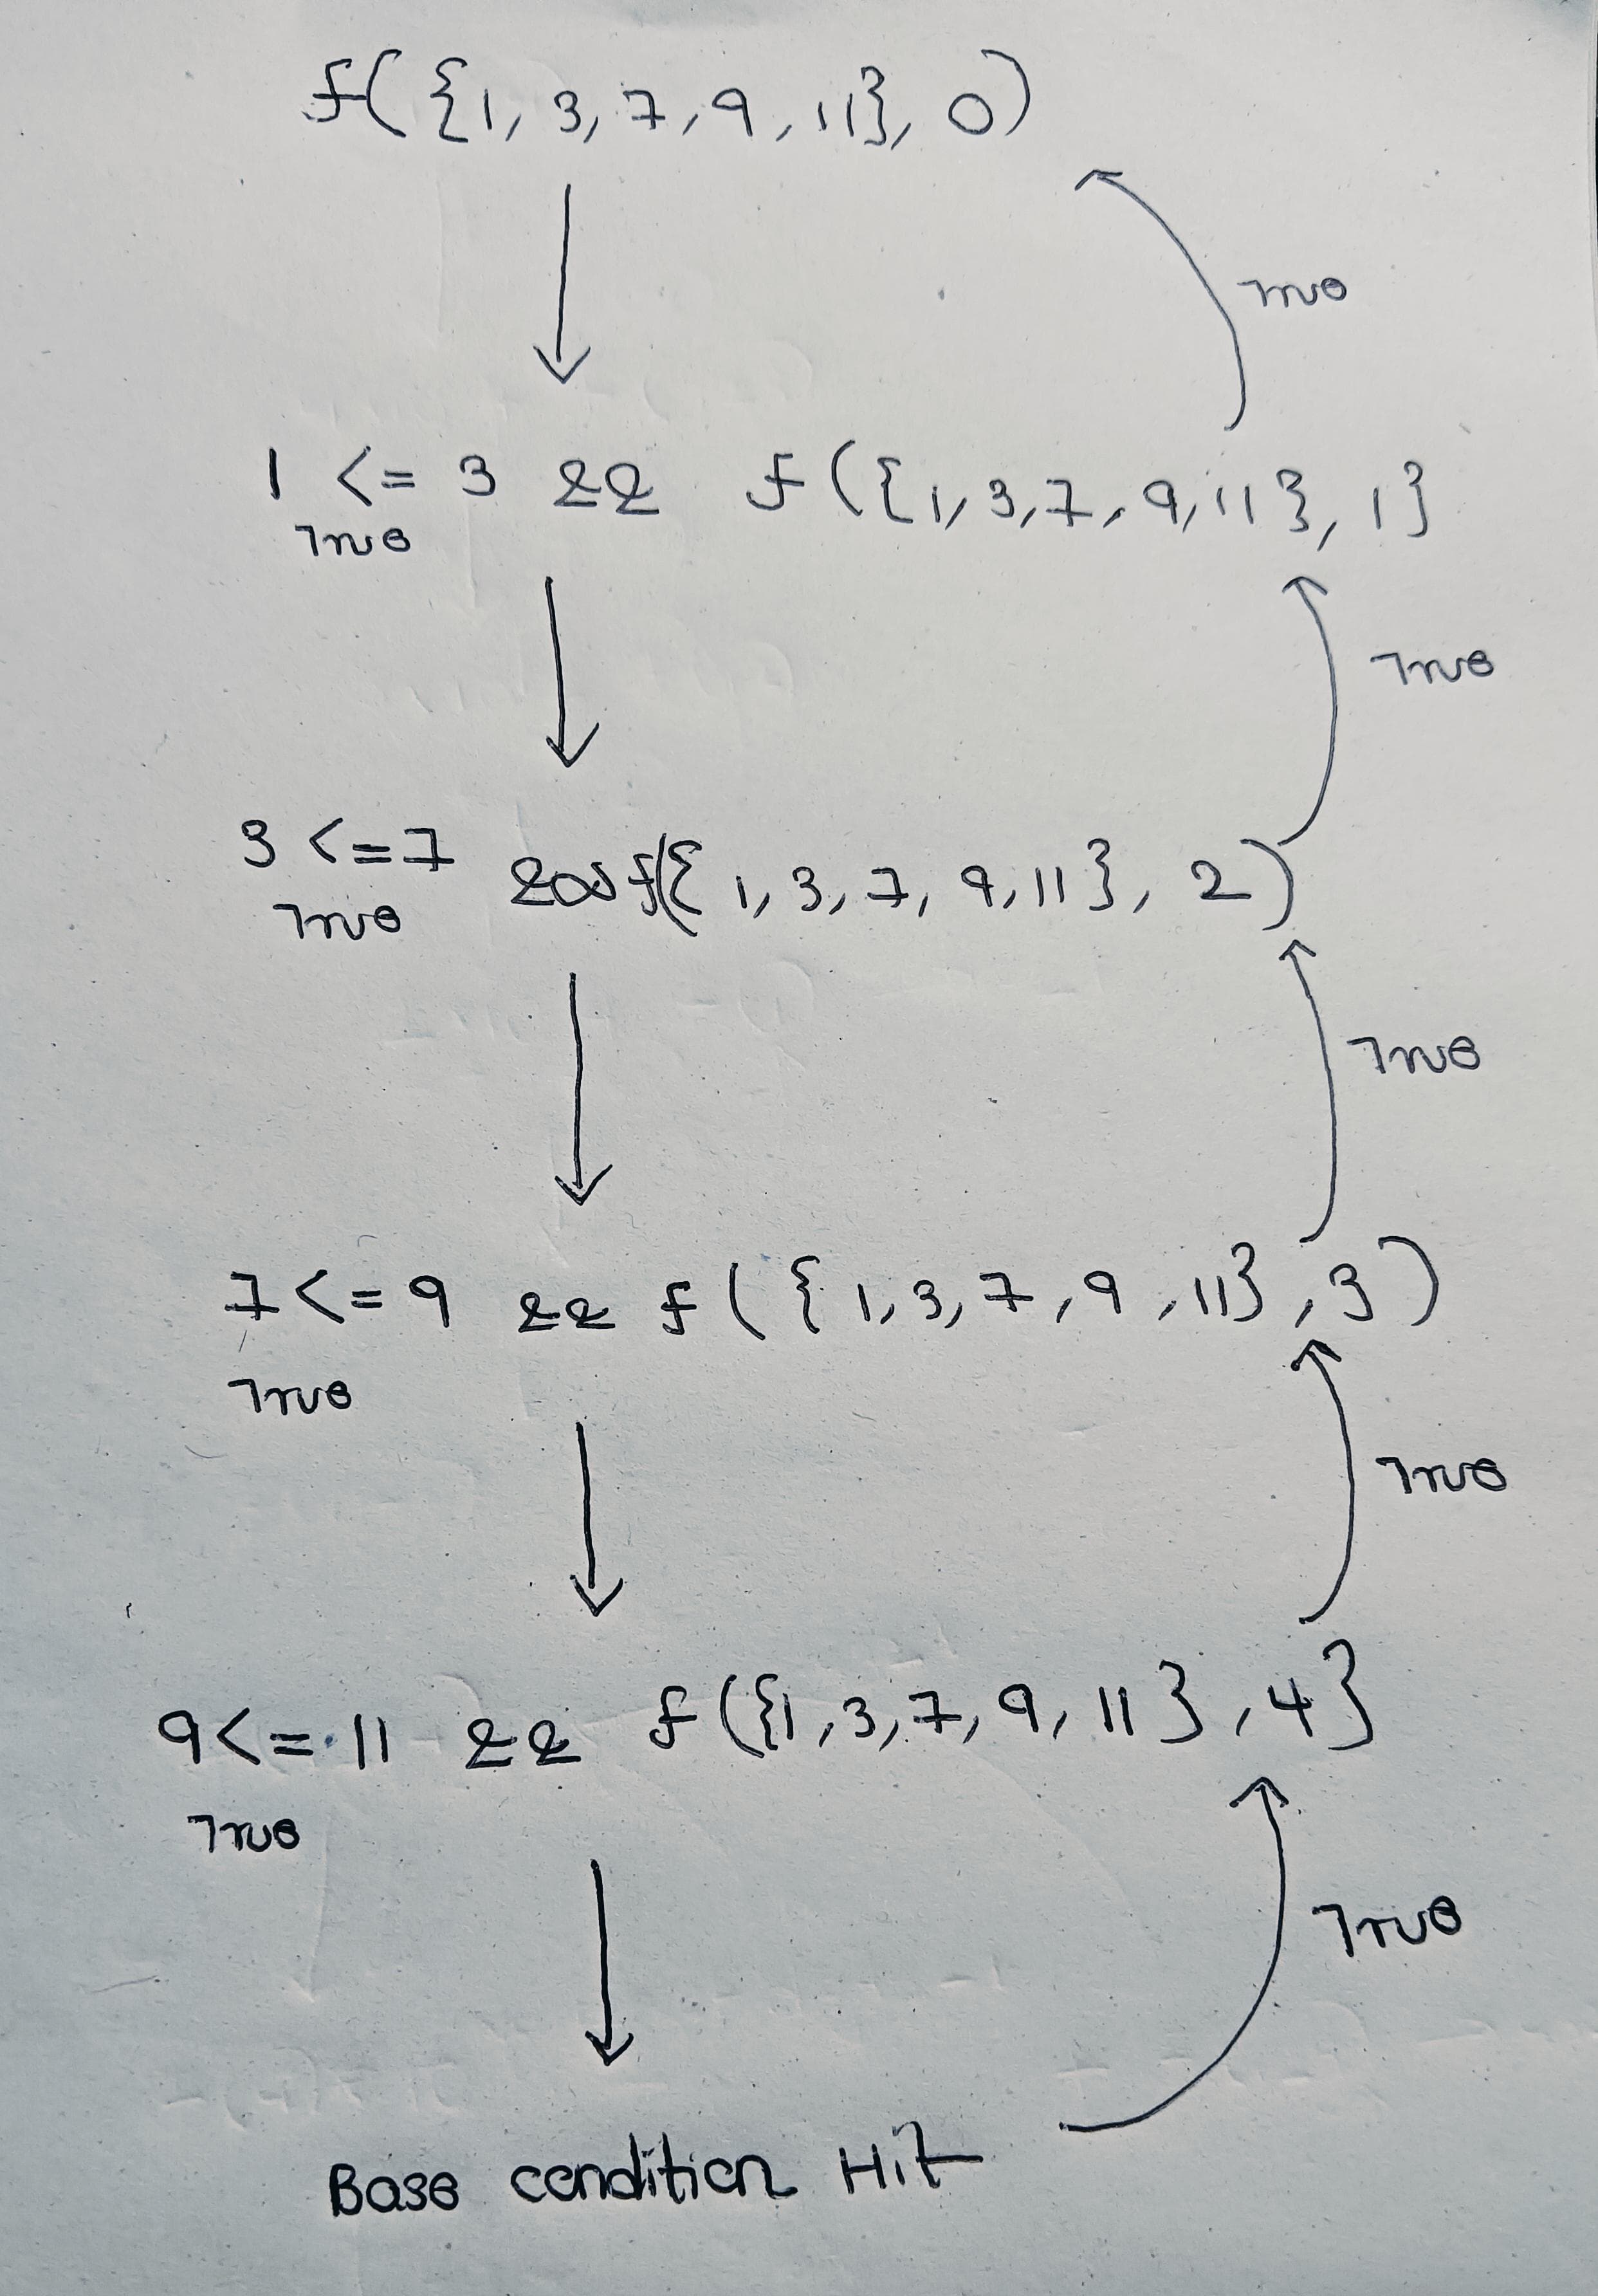 f({1, 3, 7, 9, 11}, 0)
True
1 <= 3 && f({1, 3, 7, 9, 11}, 1}
True
True
3 <= 7 && f({1, 3, 7, 9, 11}, 2)
True
True
7 <= 9 && f({1, 3, 7, 9, 11}, 3)
True
True
9 <= 11 && f({1, 3, 7, 9, 11}, 4}
True
True
Base condition Hit